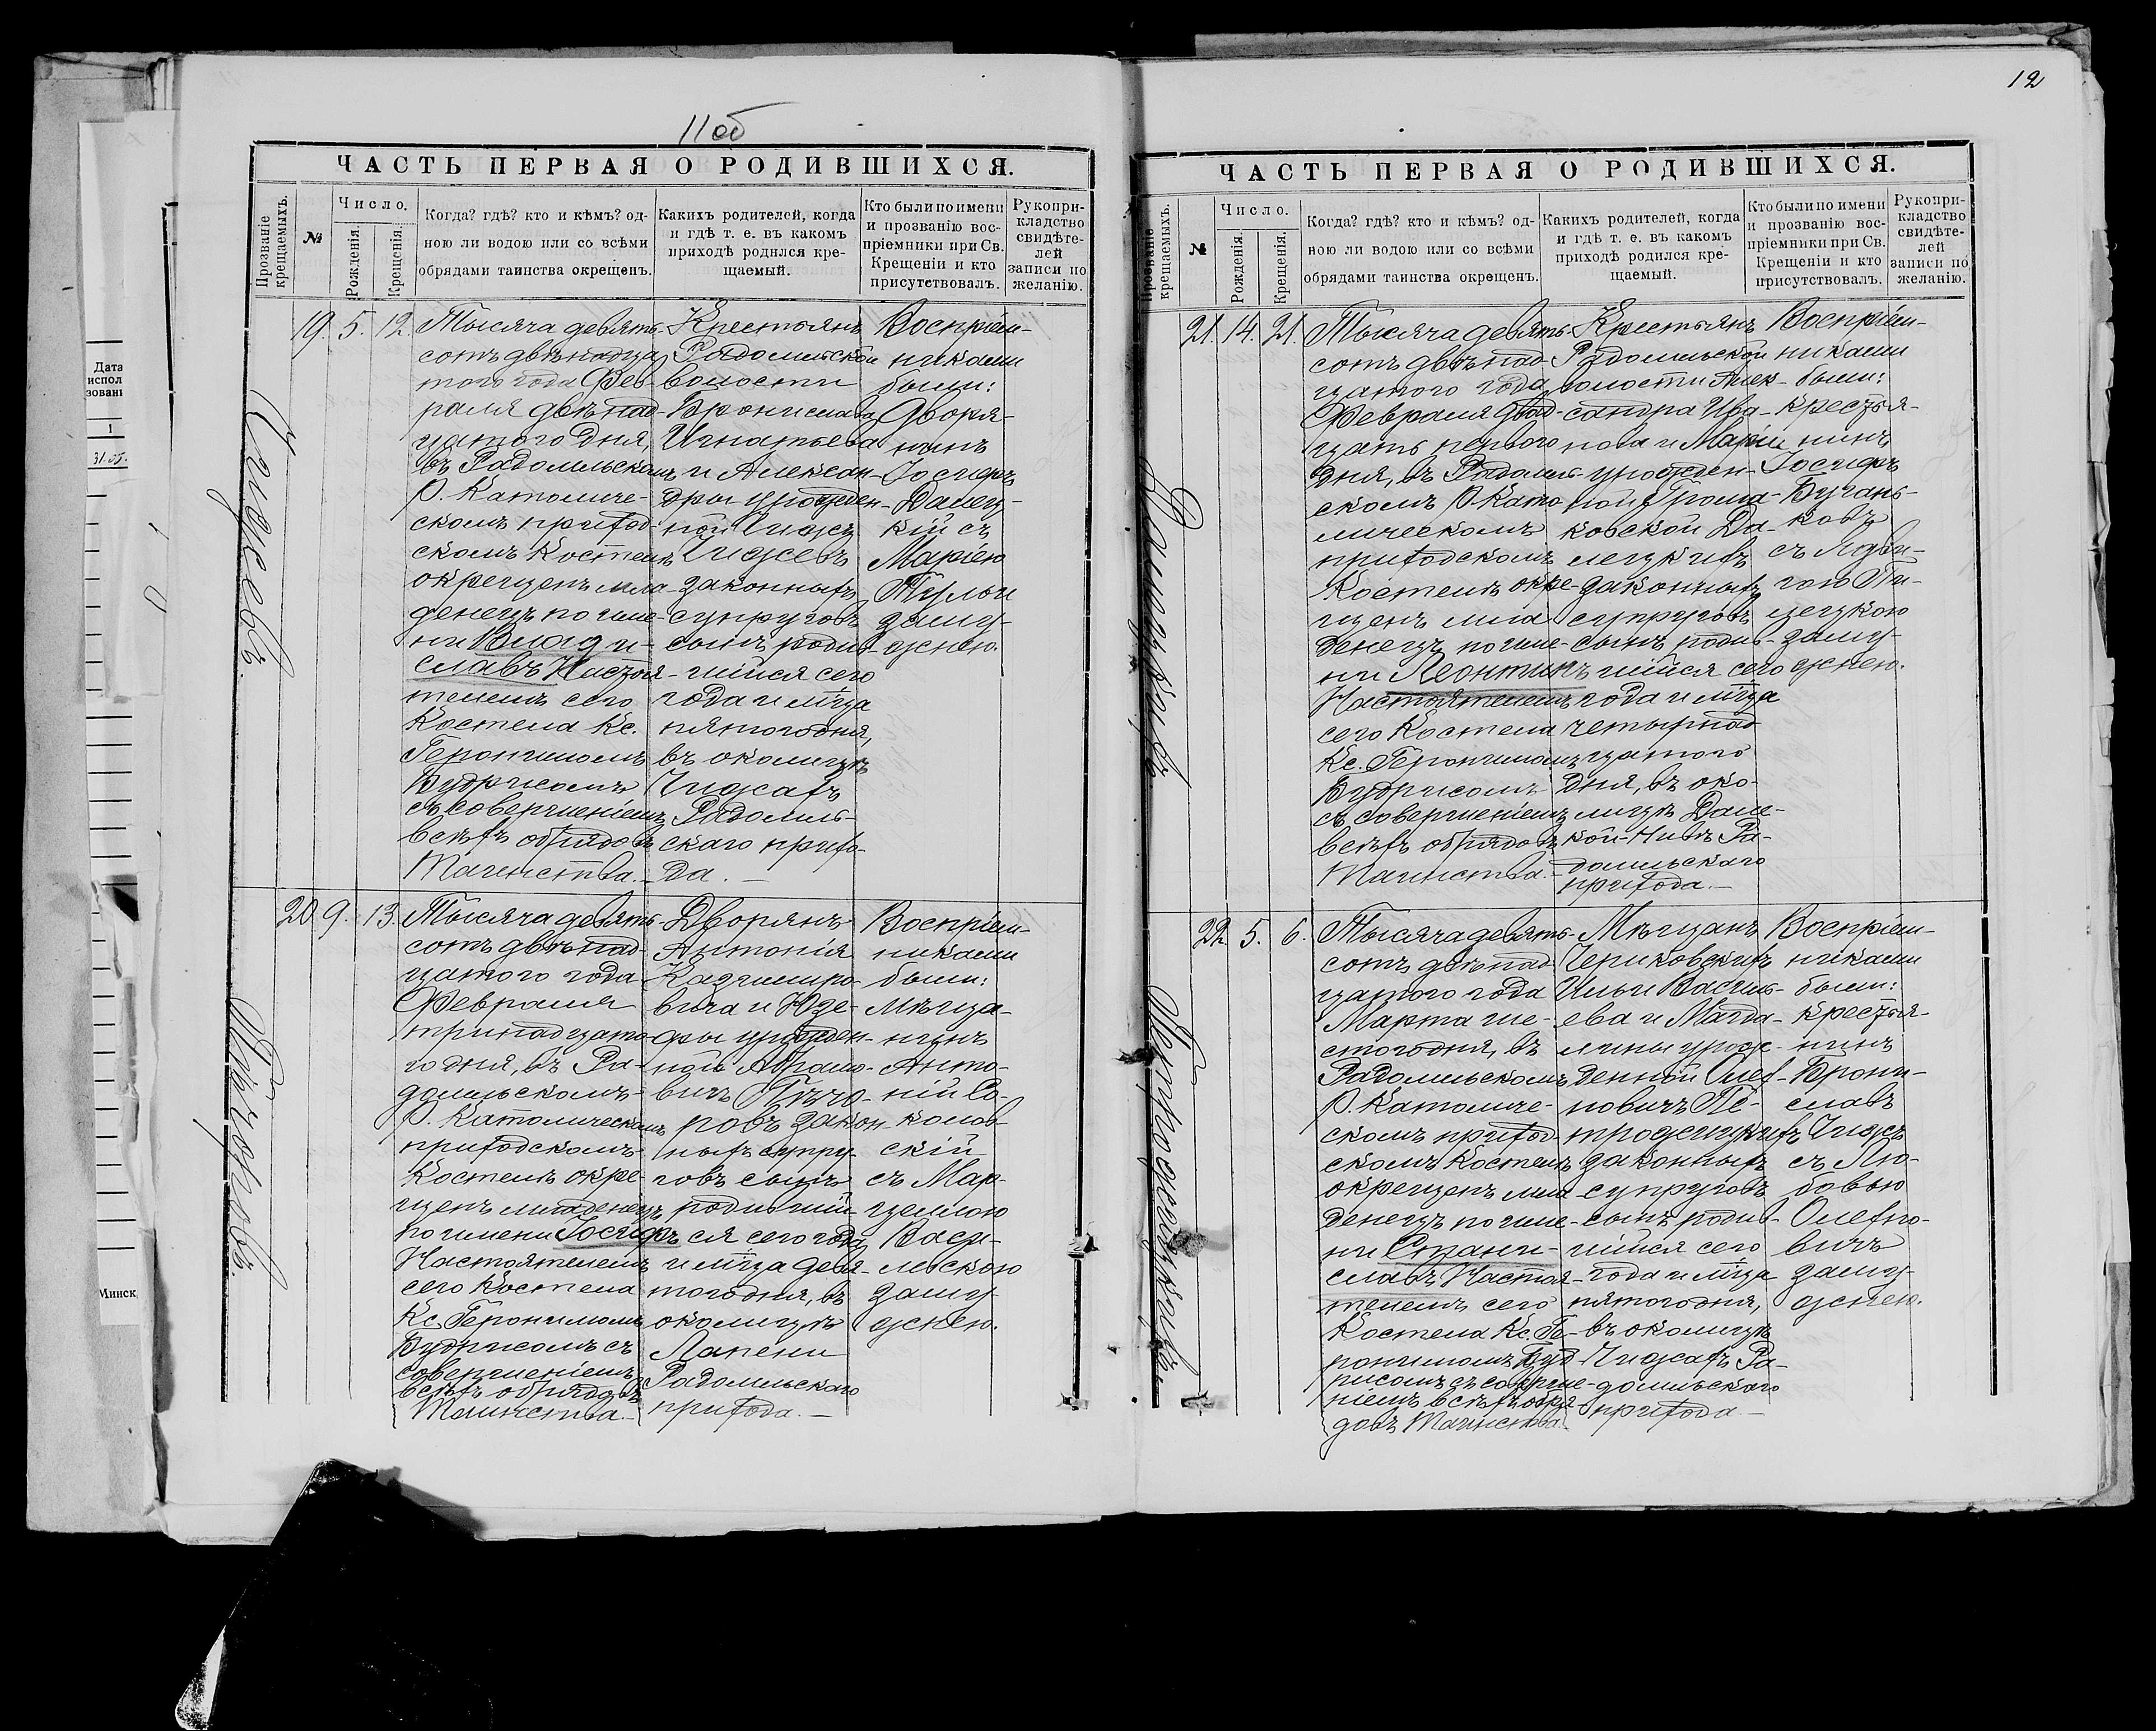 11об
ЧАСТЬ ПЕРВАЯ О РОДИВШИХСЯ.
Прозваніе крещаемыхъ.
№
Число.
Рожденія.
Крещенія.
Когда? гдѣ? кто и кѣмъ? од-
ною ли водою или со всѣми
обрядами таинства окрещенъ.
Какихъ родителей, когда
и гдѣ т. е. въ какомъ
приходѣ родился кре-
щаемый.
Кто были по имени
и прозванію вос-
пріемники при Св.
Крещеніи и кто
присутствовалъ.
Рукопри-
кладство
свидѣте-
лей
записи по
желанію.
Чижевъ.
19. 5. 12.
Тысяча девять-
сотъ двѣнадца
того года Фев-
раля двѣнад-
цатого дня,
въ Радомльскомъ
Р. Католиче-
скомъ приход-
скомъ Костелѣ
окрещенъ мла-
денецъ по име-
ни Влади-
славъ Настоя-
телемъ сего
Костела Кс.
Геронимомъ
Будрисомъ
съ совершеніемъ
всѣхъ обрядовъ
Таинства.
Крестьянъ
Радомльской
волости
Бронислава
Игнатьева
и Алексан-
дры урожден-
ной Чижъ
Чижевъ
законныхъ
супруговъ
сынъ родив-
шійся сего
года и м-ца
пятого дня,
въ околицѣ
Чижахъ
Радомль-
скаго прихо-
да.
Воспріем-
никами
были:
Дворя-
нинъ
Іосифъ
Далец-
кій съ
Маріею
Тульи
заму-
жнею.
Пѣчоровъ.
20 9. 13.
Тысяча девять-
сотъ двѣнад-
цатого года
Февраля
тринадцато-
го дня, въ Ра-
домльскомъ
Р. Католическомъ
приходскомъ
Костелѣ окре-
щенъ младенецъ
по имени Іосифъ
Настоятелемъ
сего Костела
Кс. Геронимомъ
Будрисомъ съ
совершеніемъ
всѣхъ обрядовъ
Таинства.
Дворянъ
Антонія
Казимиро-
вича и Юзе-
фы урожден-
ной Абрамо-
вичъ Пѣчо-
ровъ закон-
ныхъ супру-
говъ сынъ
родившій-
ся сего года
и м-ца девя-
того дня, въ
околицѣ
Лапени
Радомльскаго
прихода.
Воспріем-
никами
были:
мѣща-
нинъ
Анто-
ній Со-
колов-
скій
съ Мар-
целлою
Васи-
левскою
заму-
жнею.
12
ЧАСТЬ ПЕРВАЯ О РОДИВШИХСЯ.
Прозваніе крещаемыхъ.
№
Число.
Рожденія.
Крещенія.
Когда? гдѣ? кто и кѣмъ? од-
ною ли водою или со всѣми
обрядами таинства окрещенъ.
Какихъ родителей, когда
и гдѣ т. е. въ какомъ
приходѣ родился кре-
щаемый.
Кто были по имени
и прозванію вос-
пріемники при Св.
Крещеніи и кто
присутствовалъ.
Рукопри-
кладство
свидѣте-
лей
записи по
желанію.
Далецкихъ
21. 14. 21.
Тысяча девять-
сотъ двѣнад-
цатого года
Февраля двад-
цать первого
дня, въ Радомль-
скомъ Р. Като-
лическомъ
приходскомъ
Костелѣ окре-
щенъ мла
денецъ по име-
ни Леонтинъ
Настоятелемъ
сего Костела
Кс. Геронимомъ
Будрисомъ
съ совершеніемъ
всѣхъ обрядовъ
Таинства.
Крестьянъ
Радомльской
волости Алек-
сандра Ива-
нова и Маріи
урожден-
ной Грома-
ковской Да-
лецкихъ
законныхъ
супруговъ
сынъ родив-
шійся сего
года и м-ца
четырнад
цатого
дня, въ око-
лицѣ Дале-
кой-Нивѣ Ра-
домльскаго
прихода.
Воспріем-
никами
были:
крестья-
нинъ
Іосифъ
Бучань-
ковъ
съ Ядви-
гою Пи-
щецкою
заму-
жнею.
Петрожицкихъ
22 5. 6.
Тысяча девять-
сотъ двѣнад-
цатого года
Марта ше-
стого дня, въ
Радомльскомъ
Р. Католиче-
скомъ приход-
скомъ Костелѣ
окрещенъ мла-
денецъ по име-
ни Стани-
славъ Настоя-
телемъ сего
Костела Кс. Ге-
ронимомъ Буд-
рисомъ съ соверше-
ніемъ всѣхъ обря-
довъ Таинства.
Мѣщанъ
Чериковскихъ
Ильи Василь-
ева и Магда-
лины урож-
денной Олех-
новичъ Пе-
трожицкихъ
законныхъ
супруговъ
сынъ родив-
шійся сего
года и м-ца
пятого дня,
въ околицѣ
Чижахъ Ра-
домльскаго
прихода.
Воспріем-
никами
были:
крестья-
нинъ
Брони-
славъ
Чижъ
съ Лю-
бовью
Олехно-
вичъ
заму-
жнею.
Дата
испол
зовани
1
31.05.
Минск